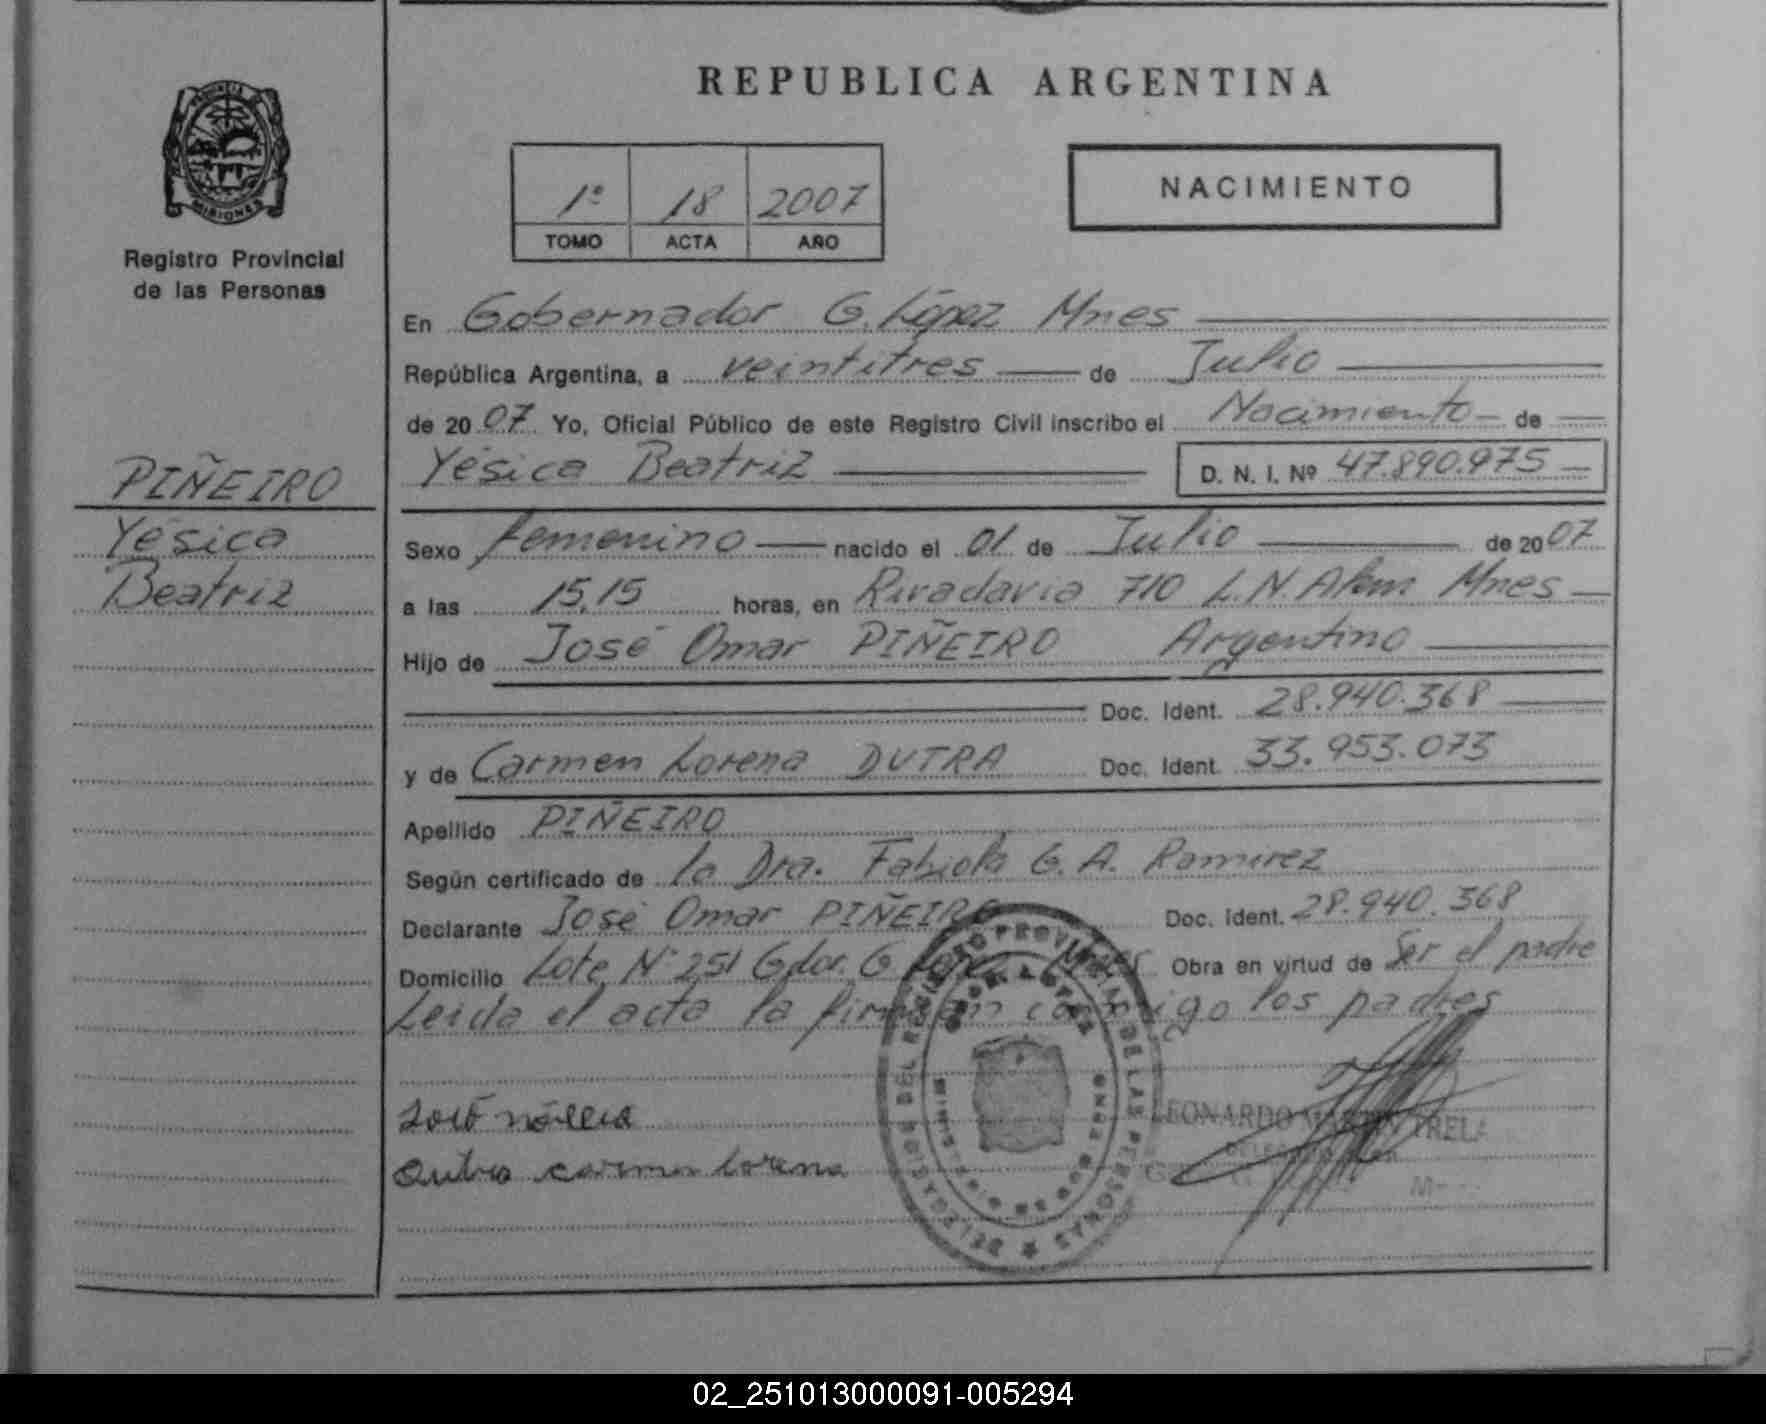 REPUBLICA ARGENTINA
PROVINCIA DE
MISIONES
Registro Provincial
de las Personas
1º 18 2007
TOMO ACTA AÑO
NACIMIENTO
En Gobernador G. López Mnes
República Argentina, a veintitres de Julio
de 2007 Yo, Oficial Público de este Registro Civil inscribo el Nacimiento de
Yésica Beatriz D. N. I. Nº 47.890.975
PIÑEIRO
Yésica
Beatriz
Sexo femenino nacido el 01 de Julio de 2007
a las 15,15 horas, en Rivadavia 710 L.N. Alem Mnes
Hijo de José Omar PIÑEIRO Argentino
Doc. Ident. 28.940.368
y de Carmen Lorena DUTRA Doc. Ident. 33.953.073
Apellido PIÑEIRO
Según certificado de la Dra. Fabiola G. A. Ramirez
Declarante José Omar PIÑEIRO Doc. Ident. 28.940.368
Domicilio Lote Nº 251 Gdor. G. López Mnes Obra en virtud de Ser el padre
Leida el acta la firman conmigo los padres
Dutra carmen lorena
LEONARDO
DE LAS PERSONAS
02_251013000091-005294